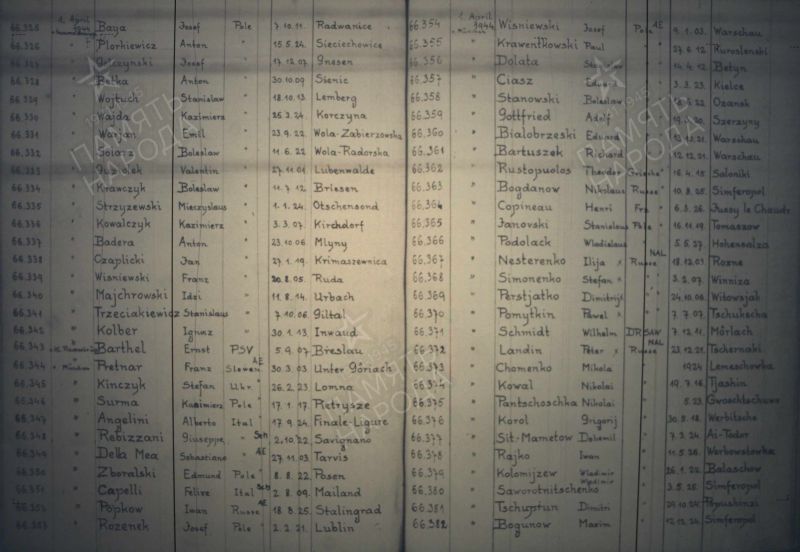 1. April 1944
66.325 Baya Josef Pole 7.10.11. Radwanice
66.326 " Plorkiewicz Anton " 15.5.24. Sieciechowice
Josef " 17.12.07 Gnesen
66.328 " Betka Anton " 30.10.09 Sienic
66.329 " Wojtuch Stanislaw " 18.10.13. Lemberg
66.330 " Wajda Kazimierz " 26.3.24. Korczyna
66.331 " Warjan Emil " 23.9.22. Wola-Zabierzowska
66.332 " Solarz Boleslaw " 11.6.22 Wola-Radorska
66.333 " Valentin " 27.11.01 Lubenwalde
66.334 " Krawczyk Boleslaw " 11.7.12 Briesen
66.335 " Strzyzewski Mieczyslaus " 1.1.24. Otschensond
66.336 " Kowalczyk Kazimierz " 3.3.07. Kirchdorf
66.337 " Badera Anton " 23.10.06 Mlyny
66.338 " Czaplicki Jan " 27.1.19. Krimaszewnica
66.339 " Wisniewski Franz " 20.8.05. Ruda
66.340 " Majchrowski Idzi " 11.8.14. Urbach
66.341 " Trzeciakiewicz Stanislaus " 7.10.06. Giltal
66.342 " Kolber Ignaz " 30.1.13 Inwaud
66.343 Barthel Ernst PSV 5.9.07 Breslau
66.344 " München Pretnar Franz Slowen. AE 30.3.03 Unter Göriach
66.345 " Kinczyk Stefan Ukr. " 26.2.23 Lomna
66.346 " Surma Kazimierz Pole " 17.1.17. Pietrysze
66.347 " Angelini Alberto Ital " 17.9.24. Finale-Ligure
66.348 " Rebizzani Giuseppe " Sch 2.10.22. Savignano
66.349 " Della Mea Sebastiano " AE 27.11.03 Tarvis
66.350 " Zboralski Edmund Pole " 8.8.22 Posen
66.351 " Capelli Felice Ital Sch 2.8.09. Mailand
66.352 " Popkow Iwan Russe AE 18.8.25. Stalingrad
66.353 " Rozenek Josef Pole " 2.2.21. Lublin
1. April 1944
66.354 München Wisniewski Josef Pole AE 9.1.03. Warschau
66.355 " Krawentkowski Paul " 27.6.12 Ruroslenski
66.356 " Dolata " 14.4.12 Betyn
66.357 " Ciasz Eduard " 3.3.23. Kielce
66.358 " Stanowski Boleslaw " Ozansk
66.359 " Gottfried Adolf " Szerzyny
66.360 " Bialobrzeski Eduard " Warschau
66.361 " Bartuszek Richard " 12.12.21. Warschau
66.362 " Rustopuolos Theodor Grieche " 16.4.15 Saloniki
66.363 " Bogdanow Nikolaus Russe " 10.8.25. Simferopol
66.364 " Copineau Henri Frz " 6.3.26. Jussy le Chaudr
66.365 " Janovski Stanislaus Pole " 16.11.19. Tomaszow
66.366 " Podolack Wladislaus " " 5.5.27. Hohensalza
66.367 " Nesterenko Ilija x Russe NAL 18.12.03 Rozne
66.368 " Simonenko Stefan x " " 3.2.07. Winniza
66.369 " Perstjatko Dimitrij x " " 24.10.06 Witowsjak
66.370 " Pomytkin Pawel x " " 7.7.07. Tschukscha
66.371 " Schmidt Wilhelm DR SAW 7.12.11. Mörlach
66.372 " Landin Peter x Russe NAL 23.12.21. Tschernaki
66.373 " Chomenko Mikola " " 1924 Lemeschowka
66.374 " Kowal Nikolai " " 19.7.16 Tjashin
66.375 " Pantschoschka Nikolai " " 5.23. Gwoschtschawe
66.376 " Korol Grigorij " " 30.5.18. Werbitsche
66.377 " Sit-Mametow " " 7.3.24. Ai-Todor
66.378 " Rajko Iwan " " 11.5.26. Werbowstowka
66.379 " Kolomijzew Wladimir " " 26.1.22. Balaschow
66.380 " Saworotnitschenko Wladimir " " 3.5.26. Simferopol
66.381 " Tschustun Dimitri " " 29.10.24. Popushinzi
66.382 " Bogunow Maxim " " 12.12.24. Simferopol
1941-1945
ПАМЯТЬ
НАРОДА
1941-1945
ПАМЯТЬ
НАРОДА
ПАМЯТЬ
НАРОДА